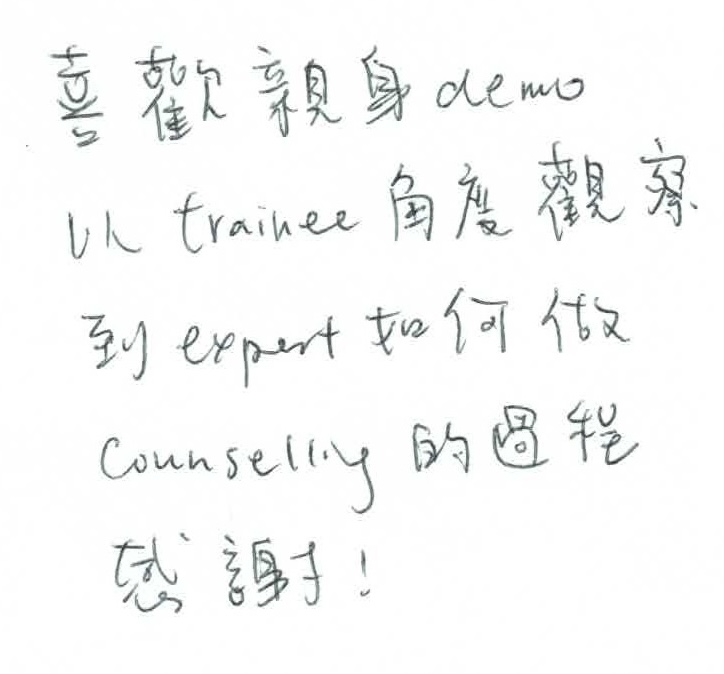 喜歡親身demo
以trainee角度觀察
到expert如何做
counselling的過程
感謝!